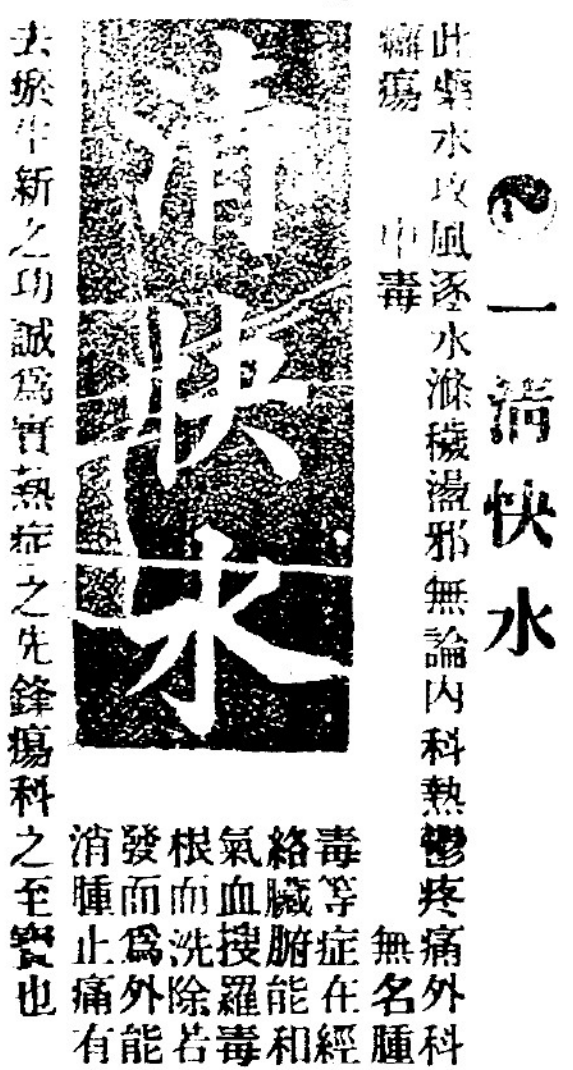 一清快水
此藥水攻風逐水滌穢盪邪無論內科熱鬱疼痛外科
癰瘍 中毒 無名腫
毒等症在經
絡臟腑能和
氣血搜羅毒
根而洗除若
發而爲外能
消腫止痛有
清快水
去瘀生新之功誠爲實熱症之先鋒瘍科之至寶也